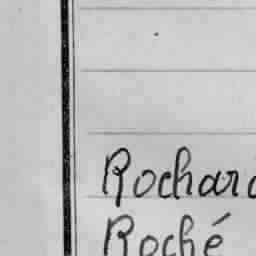 Rochar
Roché